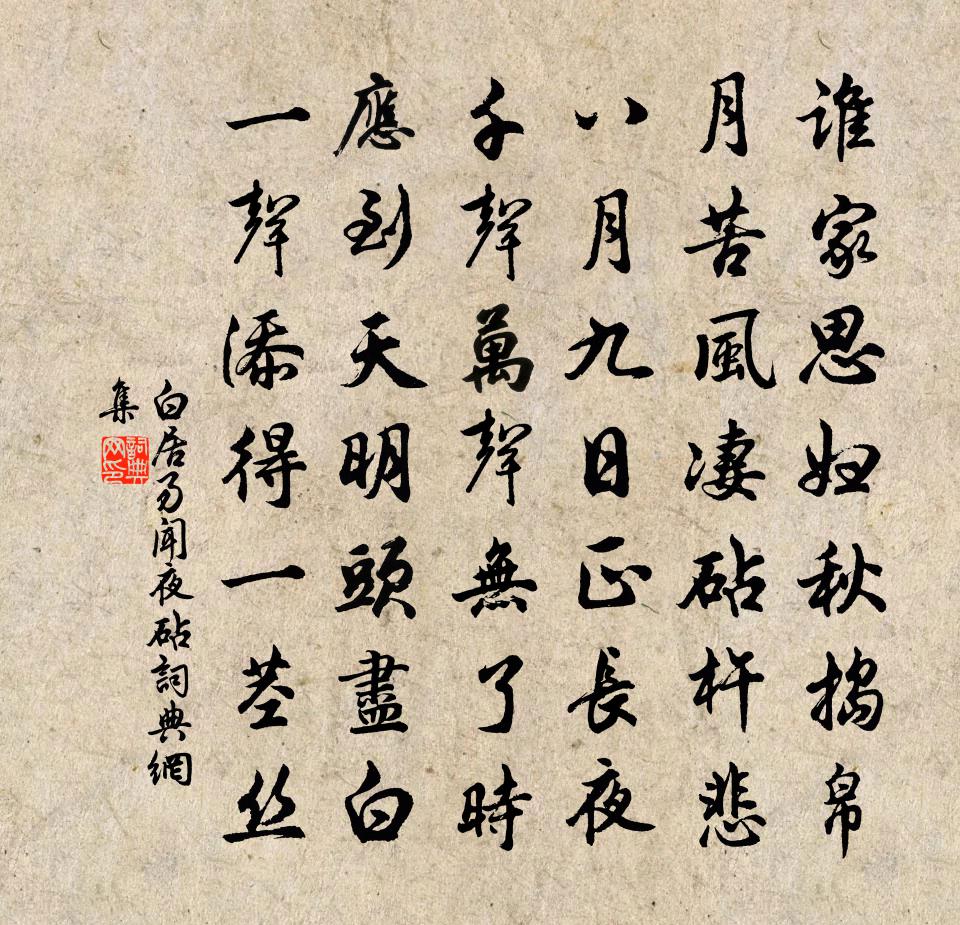 誰家思婦秋搗帛
月苦風凄砧杵悲
八月九日正長夜
千聲萬聲無了時
應到天明頭盡白
一聲添得一莖丝
白居易聞夜砧詞典網
集
詞典
网印